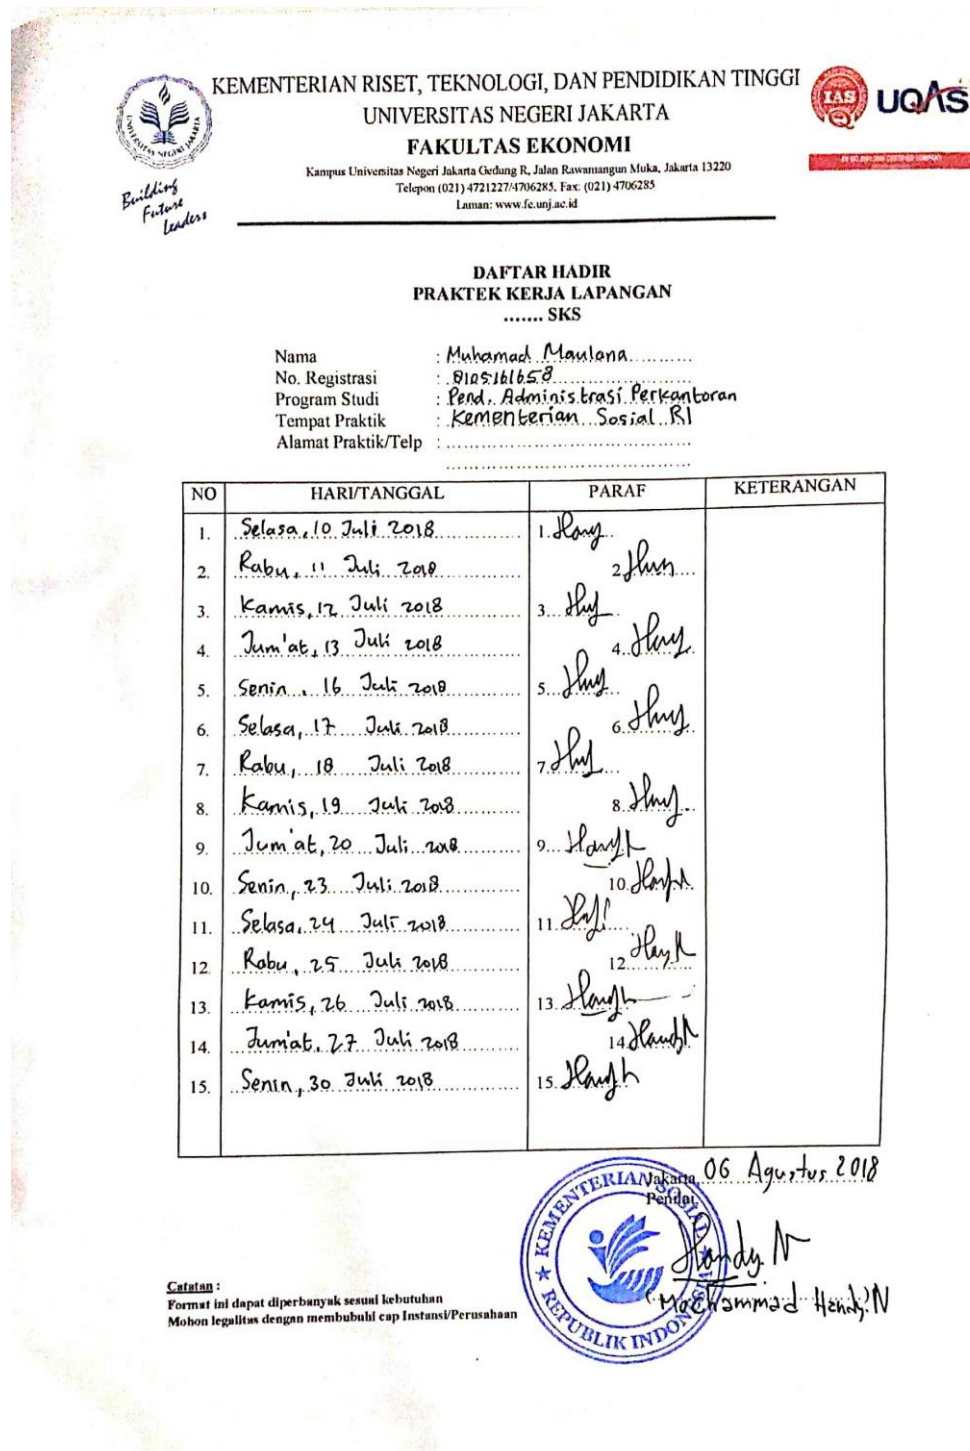 KEMENTERIAN RISET, TEKNOLOGI, DAN PENDIDIKAN TINGGI
UNIVERSITAS NEGERI JAKARTA
FAKULTAS EKONOMI
Kampus Universitas Negeri Jakarta Gedung R, Jalan Rawamangun Muka, Jakarta 13220
Telepon (021) 4721227/4706285, Fax: (021) 4706285
Laman: www.fe.unj.ac.id
UNIVERSITAS NEGERI JAKARTA
Building
Future
Leaders
IAS
UQAS
DAFTAR HADIR
PRAKTEK KERJA LAPANGAN
....... SKS
Nama : Muhamad Maulana
No. Registrasi : 8105161658
Program Studi : Pend. Administrasi Perkantoran
Tempat Praktik : Kementerian Sosial RI
Alamat Praktik/Telp :
NO HARI/TANGGAL PARAF KETERANGAN
1. Selasa, 10 Juli 2018 1.
2. Rabu, 11 Juli 2018 2.
3. Kamis, 12 Juli 2018 3.
4. Jum'at, 13 Juli 2018 4.
5. Senin, 16 Juli 2018 5.
6. Selasa, 17 Juli 2018 6.
7. Rabu, 18 Juli 2018 7.
8. Kamis, 19 Juli 2018 8.
9. Jum'at, 20 Juli 2018 9.
10. Senin, 23 Juli 2018 10.
11. Selasa, 24 Juli 2018 11.
12. Rabu, 25 Juli 2018 12.
13. Kamis, 26 Juli 2018 13.
14. Jum'at, 27 Juli 2018 14.
15. Senin, 30 Juli 2018 15.
Jakarta, 06 Agustus 2018
Penilai,
KEMENTERIAN SOSIAL
REPUBLIK INDONESIA
Handy N
(Mochammad Handy N
Catatan :
Format ini dapat diperbanyak sesuai kebutuhan
Mohon legalitas dengan membubuhi cap Instansi/Perusahaan